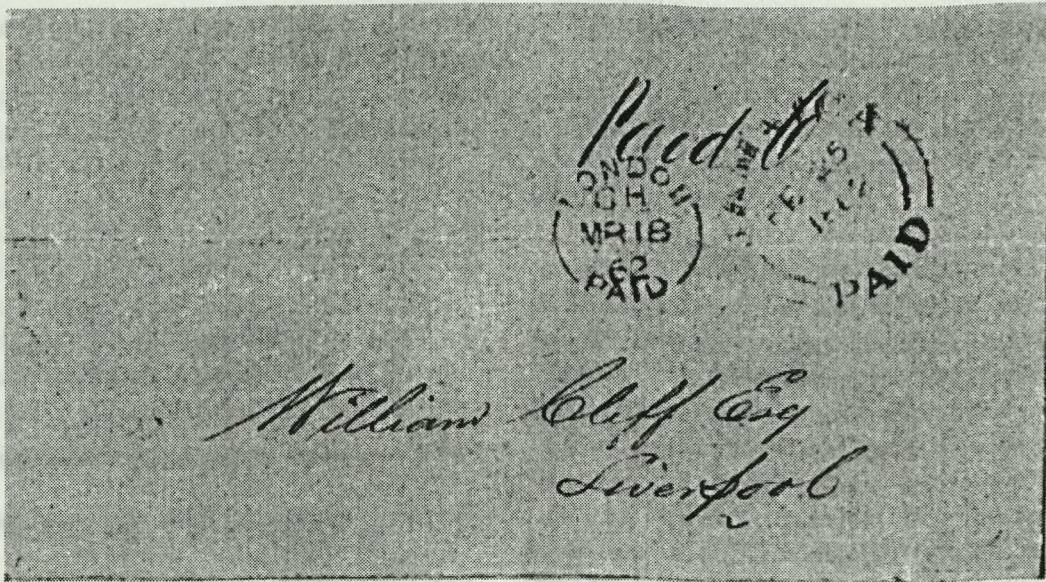 Paid
LONDON
CH
MR 18
62
PAID
PAID
William Cliff Esq
Liverpool